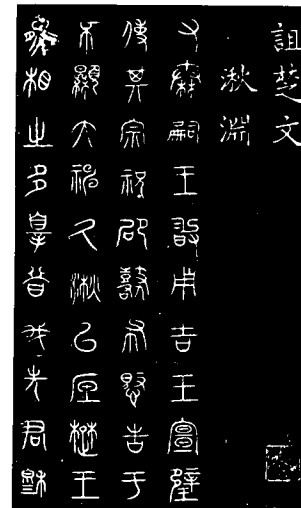 詛楚文
湫淵
又秦嗣王敢用吉玉宣璧
使其宗祝邵鼛布憗告于
不顯大神久湫以厎楚王
熊相之多辠昔我先君穆